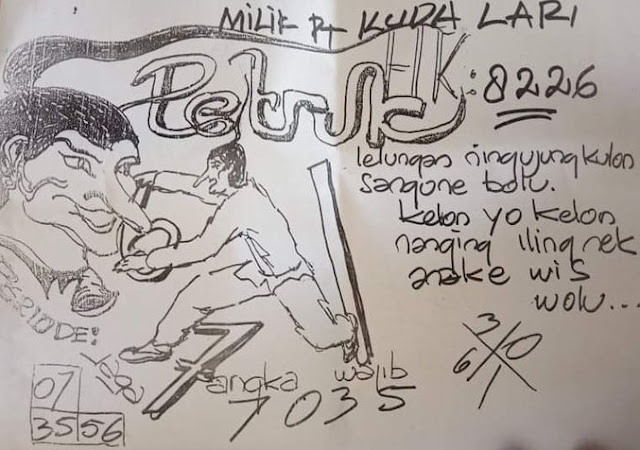 MILIK Pt KUDA LARI
Petruk
HK: 8226
lelungan ningujungkulon
sangune bolu.
kelon yo kelon
nanging iling nek
anake wis
wolu...
PERIODE:
7 angka wajib
7035
07
35 56
3
6 0
1